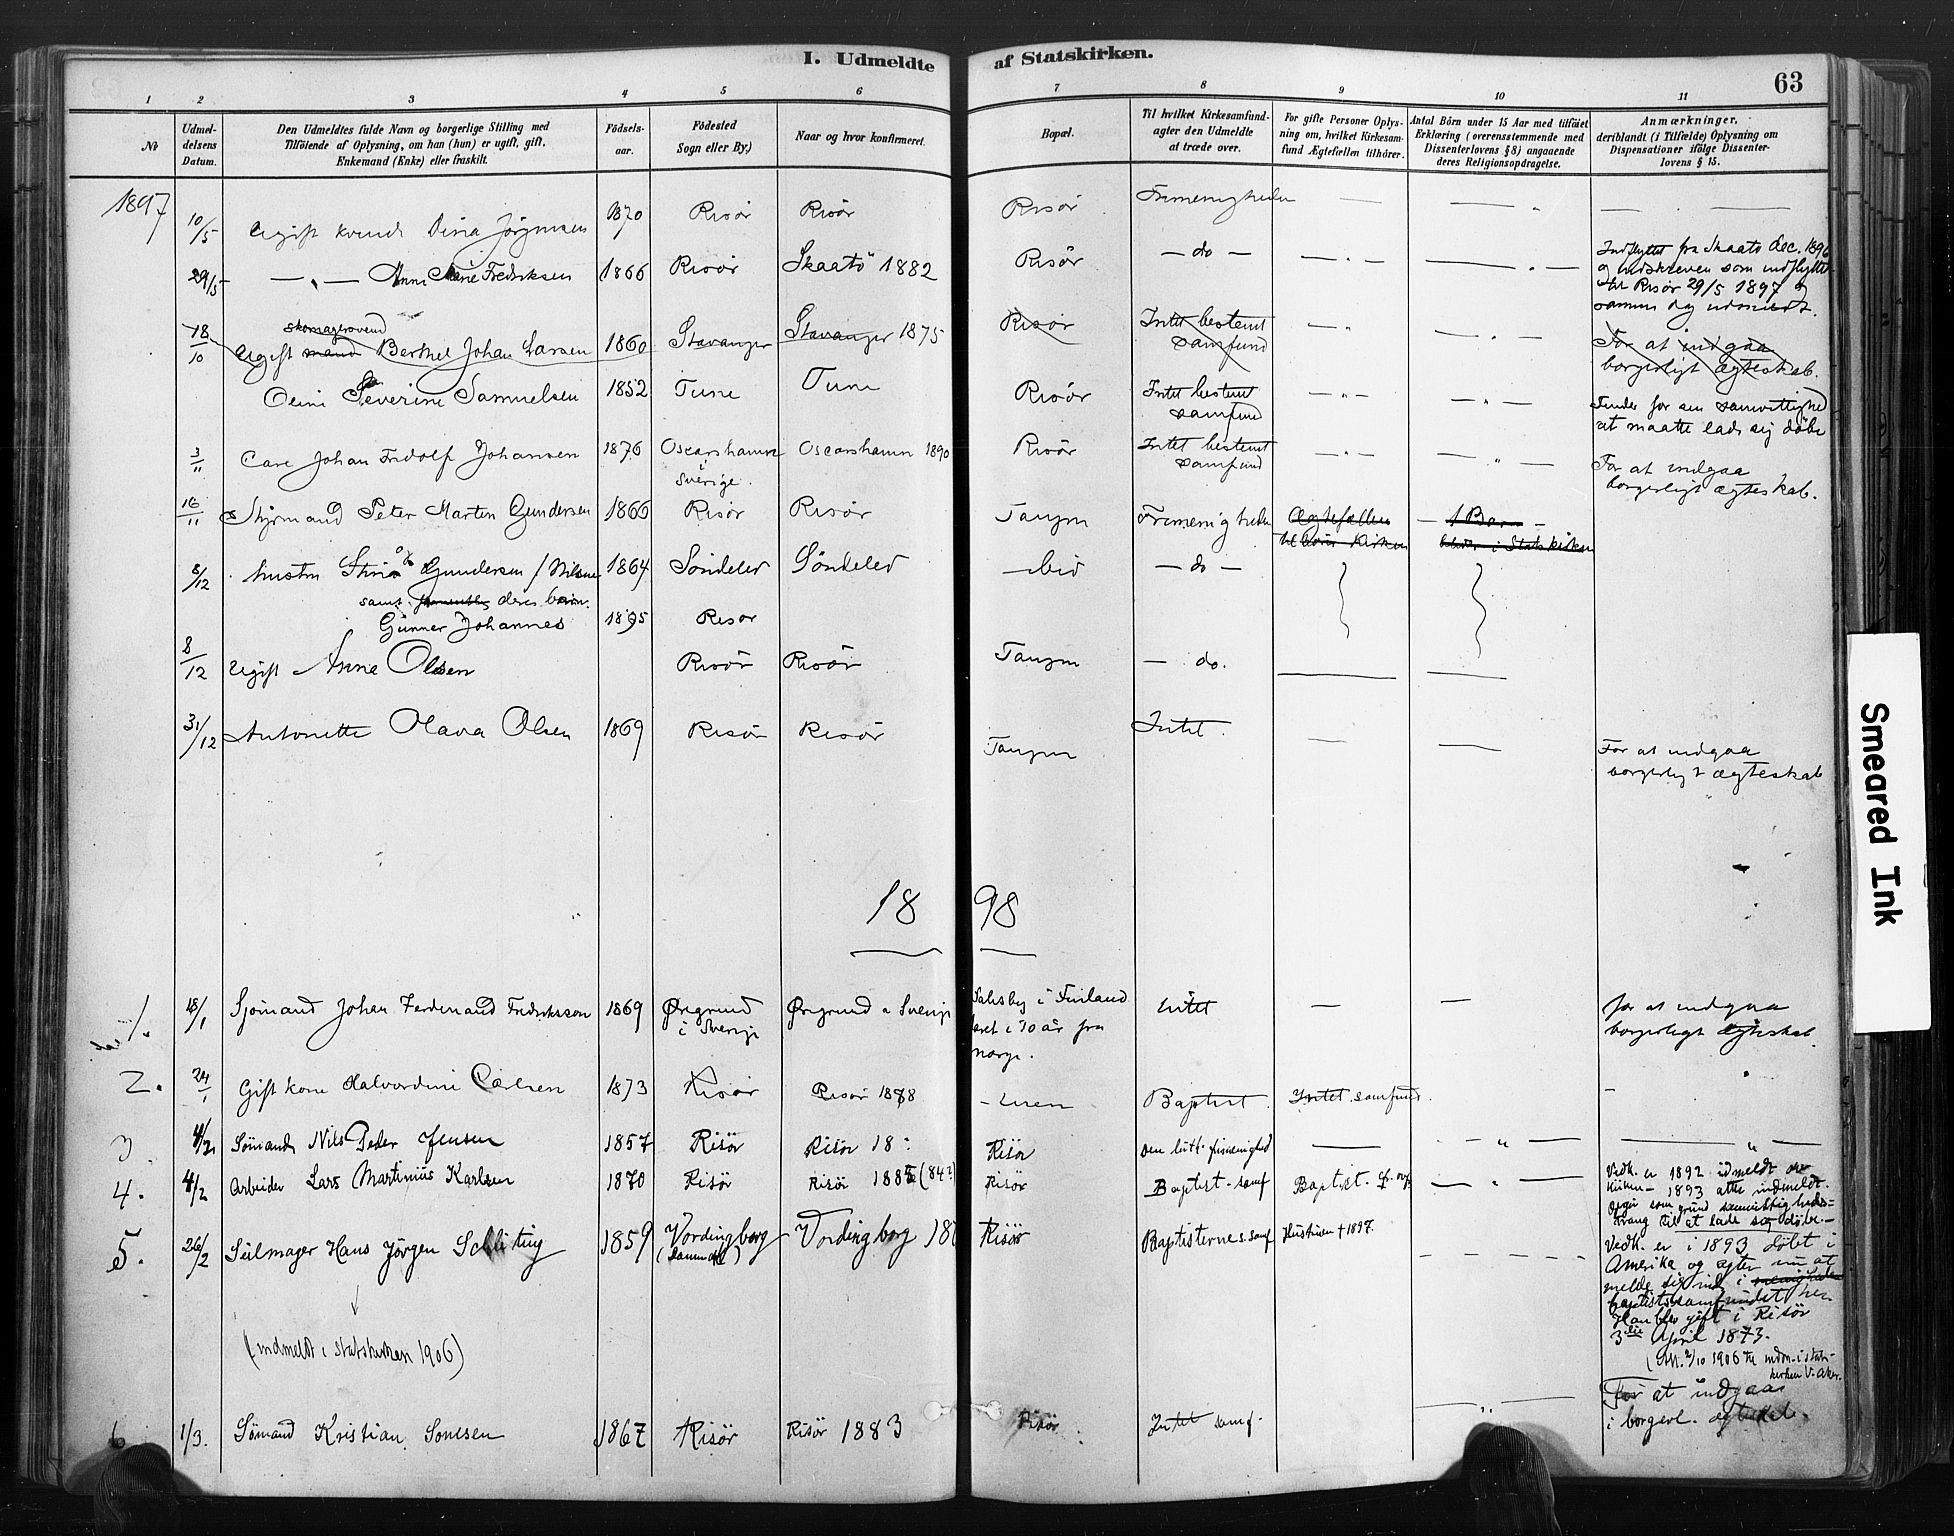 I. Udmeldte af Statskirken.
63
1 2 3 4 5 6 7 8 9 10 11
No
Udmel-
delsens
Datum.
Den Udmeldtes fulde Navn og borgerlige Stilling med
Tilföiende af Oplysning, om han (hun) er ugift, gift,
Enkemand (Enke) eller fraskilt.
Födsels-
aar.
Födested
Sogn eller By.)
Naar og hvor konfirmeret.
Bopæl.
Til hvilket Kirkesamfund
agter den Udmeldte
at træde over.
For gifte Personer Oplys-
ning om, hvilket Kirkesam-
fund Ægtefællen tilhörer.
Antal Börn under 15 Aar med tilföiet
Erklæring (overensstemmende med
Dissenterlovens § 8) angaaende
deres Religionsopdragelse.
Anmærkninger,
deriblandt (i Tilfælde) Oplysning om
Dispensationer ifölge Dissenter-
lovens § 15.
1897
10/5 Ugift kvinde Dina Jörgensen 1870 Risör Risör Risör Frimenigheden
29/5 — „ — Anne Marie Fredriksen 1866 Risör Skaatö 1882 Risör — do —
Indflyttet fra Skaatö Dec. 1896
og indskreven som indflyttet
til Risör 29/5 1897 og
samme dag udmeldt.
18/10 skomagersvend
Ugift mand Berthel Johan Larsen 1860 Stavanger Stavanger 1875 Risör Intet bestemt
samfund
For at indgaa
borgerligt ægteskab.
Oline Severine Samuelsen 1852 Tune Tune Risör Intet bestemt
samfund
Finder for sin samvittighed
at maatte lade sig döbe
3/11 Carl Johan Fridolf Johansen 1876 Oscarshamn
i
Sverige.
Oscarshamn 1890 Risör Intet bestemt
samfund
For at indgaa
borgerligt ægteskab.
16/11 Styrmand Peter Martin Gundersen 1866 Risör Risör Tangen Frimenigheden Ægtefællen
tilhörer Kirken
1 Barn
i Statskirken
8/12 hustru Gundersen / Nilsen 1864 Söndeled Söndeled — ibid — do —
samt deres barn.
Gunner Johannes 1895 Risör
8/12 Ugift Anne Olsen Risör Risör Tangen — do.
31/12 Antonette Olava Olsen 1869 Risör Risör Tangen Intet.
For at indgaa
borgerligt ægteskab
1898
1. 18/1 Sjömand Johan Ferdinand Fredriksson 1869 Øregrund
i Sverige
Øregrund i Sverige
i Finland
i 10 år fra
norge.
Intet
for at indgaa
borgerligt ægteskab.
2. 24/1 Gift kone Halvordine Carlsen 1873 Risör Risör 1888 Baptist. Intet samfund.
3. 4/2 Sömand Nils Peder Jensen 1857 Risör Risör 18 Risör Den luth. frimenighed
4. 4/2 Arbeider Lars Martinius Karlsen 1870 Risör Risör 1885 (84?) Risör Baptist-samf Baptist.
Vedk. er 1892 udmeldt av
Kirken – 1893 atter indmeldt.
Opgir som grund samvittigheds-
trang til at lade sig döbe.
5. 26/2 Seilmager Hans Jörgen Schliting 1859 Vordingborg
(Danmark)
Vordingborg 18 Risör Baptisternes samf Hustruen † 1897.
Vedk. er i 1893 döbt i
Amerika og agter nu at
melde sig ind i menigheden
baptistsamfundet her
Han blev gift i Risör
3die April 1873.
(Att. 2/10 1906 til indm. i stats-
kirken V. Aker.
(indmeldt i statskirken 1906)
6 1/3. Sömand Kristian Sonesen 1867 Risör Risör 1883 Risör Intet samf.
For at indgaa
i borgerl. ægteskab.
Smeared Ink